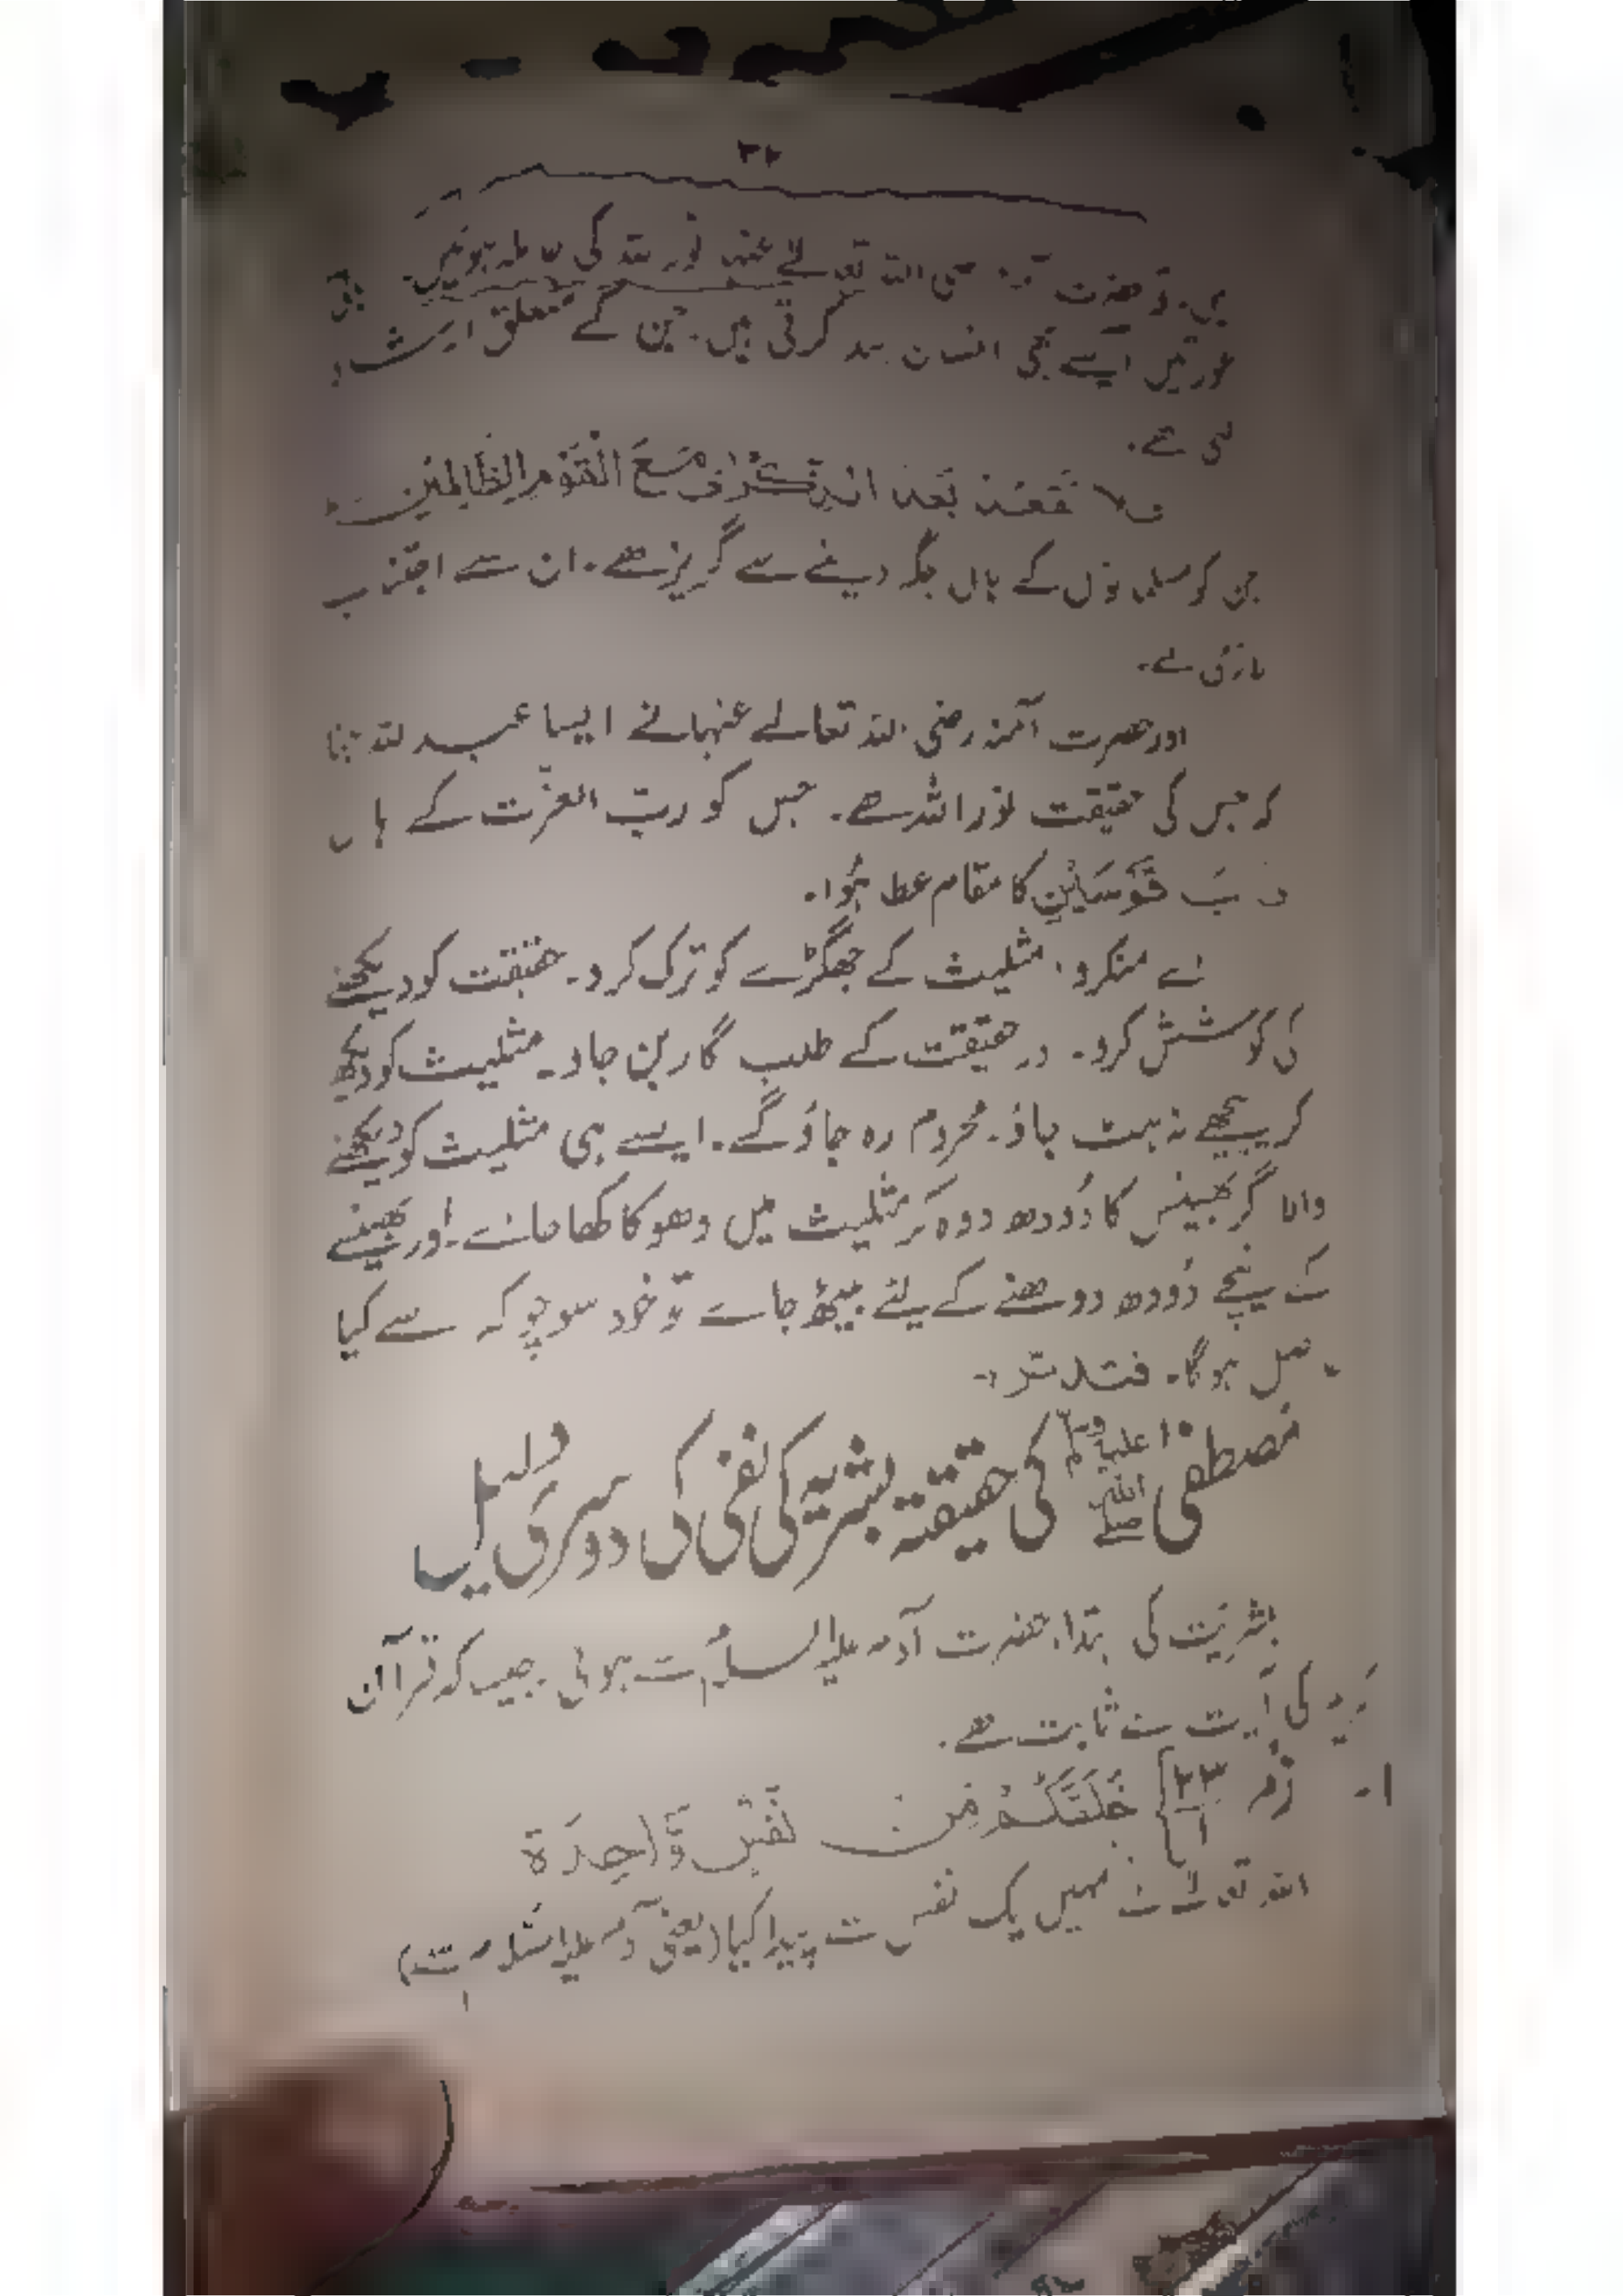 ۳۲
حضرت کی حاملہ ہوئیں۔
عورتیں ایسے بھی انسان کرتی ہیں۔ جن کے متعلق ارشاد
ہے۔
تَقْعُدْ بَعْدَ مَعَ الْقَوْمِ الظَّالِمِيْنَ
جن کو مسلمانوں کے ہاں جگہ دینے سے گریز ہے۔ ان سے اجتناب
لازمی ہے۔
اور حضرت آمنہ رضی اللہ تعالےٰ عنہا نے ایسا عبد اللہ جنا
کہ جس کی حقیقت نور اللہ ہے۔ جس کو ربّ العزّت کے ہاں
قَابَ قَوْسَيْنِ کا مقام عطا ہُوا۔
اے منکرو، مثلیث کے جھگڑے کو ترک کر دو۔ حقیقت کو دیکھنے
کی کوشش کرو۔ در حقیقت کے طلب گار بن جاؤ۔ مثلیث کو دیکھ
کر پیچھے نہ ہٹ جاؤ۔ محروم رہ جاؤ گے۔ ایسے ہی مثلیث کو دیکھنے
والا گر بھینس کا دُودھ دوہ کر مثلیث میں دھوکا کھا جائے۔ اور بھینسے
کے نیچے دُودھ دوھنے کے لئے بیٹھ جائے تو خود سوچو کہ اسے کیا
حاصل ہوگا۔ فتدبّر۔
مصطفیٰ صلی اللہ علیہ وسلم کی حقیقۃ بشریہ کی نفی کی دوسری دلیل
بشریّت کی ابتدا، حضرت آدم علیہ السلام سے ہوئی۔ جیسا کہ قرآن
کی آیت سے ثابت ہے۔
۱۔ زمر ۲۳ خَلَقَكُمْ مِنْ نَفْسٍ وَّاحِدَةٍ
اللہ تعالےٰ نے تمہیں ایک نفس سے پیدا کیا (یعنی آدم علیہ السّلام سے)